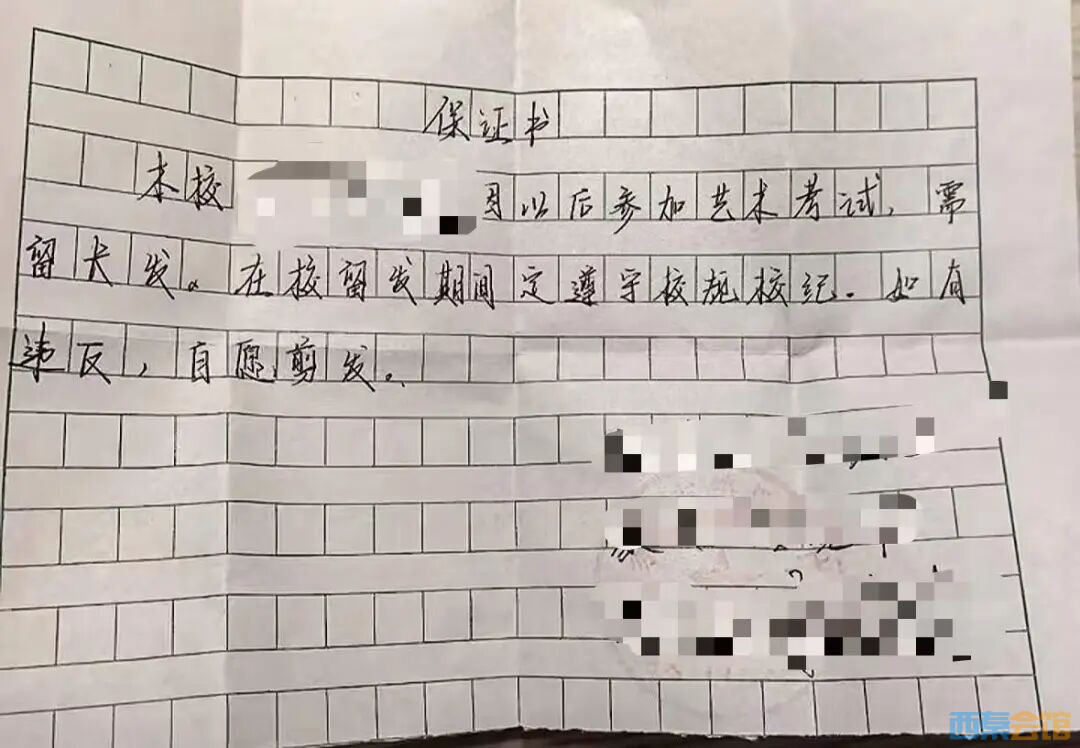 保证书
本校 因以后参加艺术考试，需
留长发。在校留发期间定遵守校规校纪．如有
违反，自愿剪发。
西秦会馆